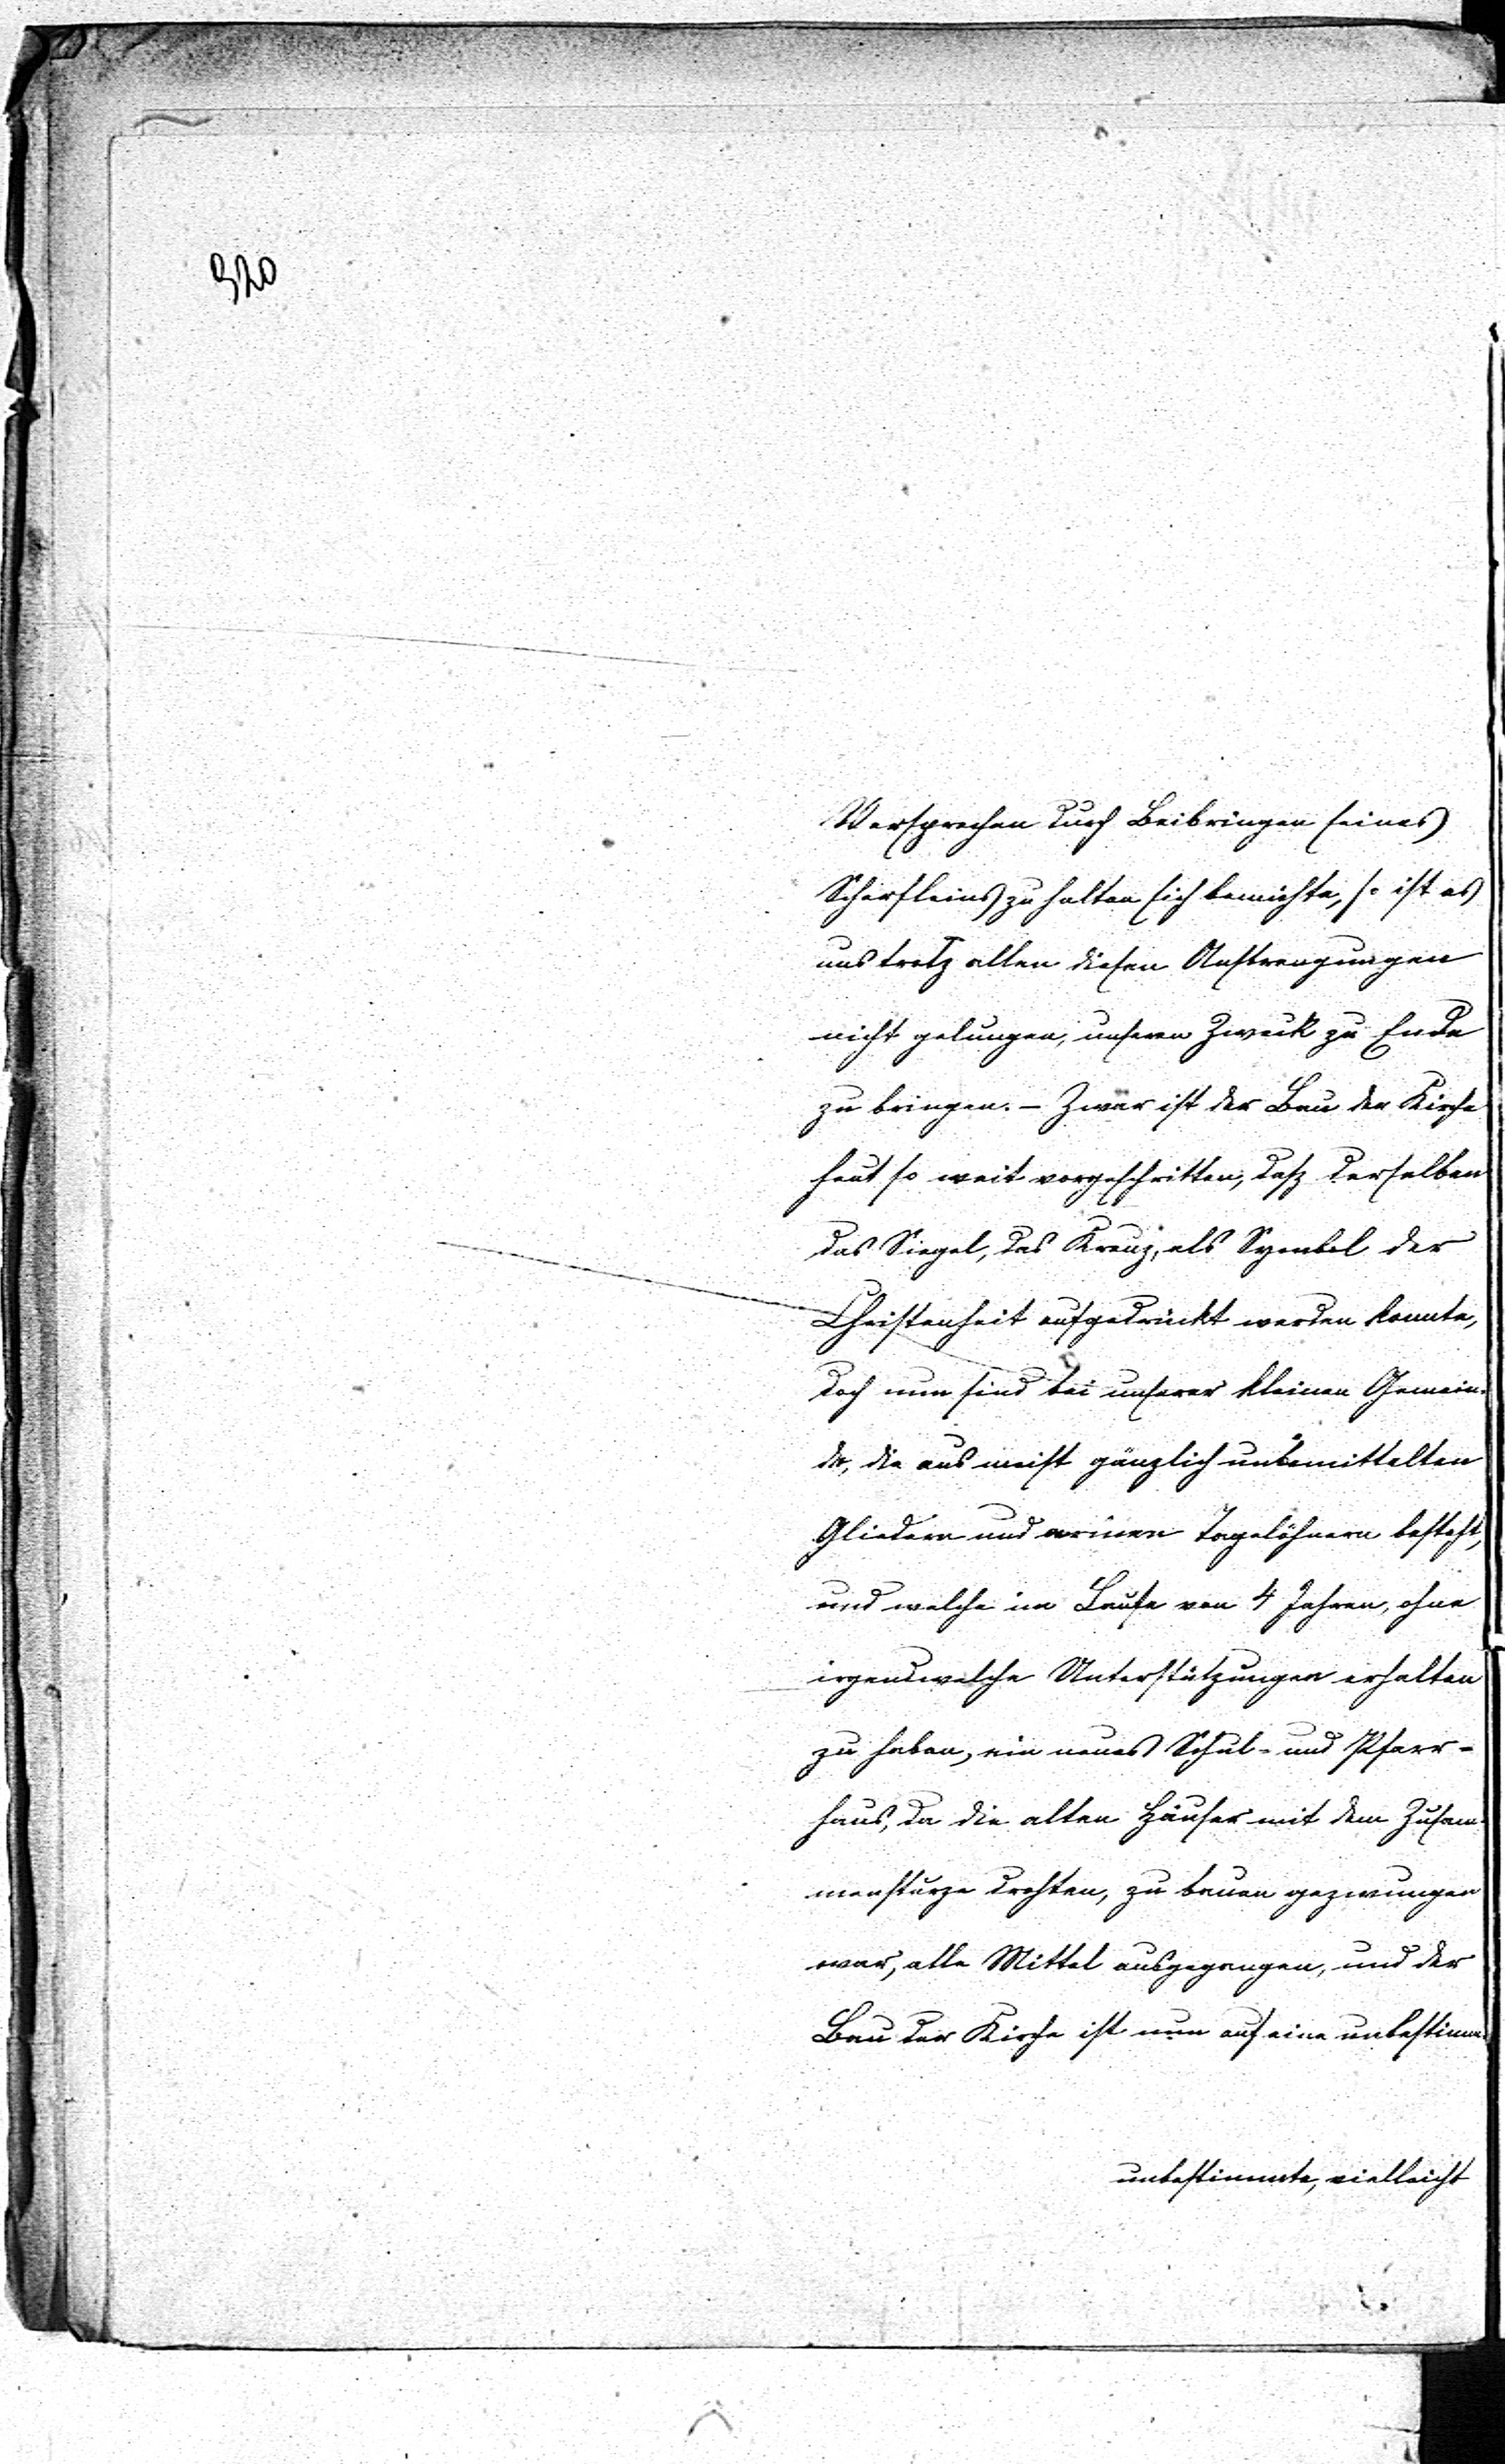 320
Versprechen durch Beibringen seines
Scherfleins zu halten sich bemühte, so ist es
uns trotz allen diesen Anstrengungen
nicht gelungen, unseren Zweck zu Ende
zu bringen. – Zwar ist der Bau der Kirche
heut so weit vorgeschritten, daß derselben
das Siegel, das Kreuz, als Symbol der
Christenheit aufgedrückt werden konnte,
doch nun sind bei unserer kleinen Gemein-
de, die aus meist gänzlich unbemittelten
Gliedern und armen Tagelöhnern besteht,
und welche im Laufe von 4 Jahren, ohne
irgendwelche Unterstützungen erhalten
zu haben, ein neues Schul- und Pfarr-
haus, da die alten Häuser mit dem Zusam-
mensturze drohten, zu bauen gezwungen
war, alle Mittel ausgegangen, und der
Bau der Kirche ist nun auf eine unbestimm-
unbestimmte, vielleicht